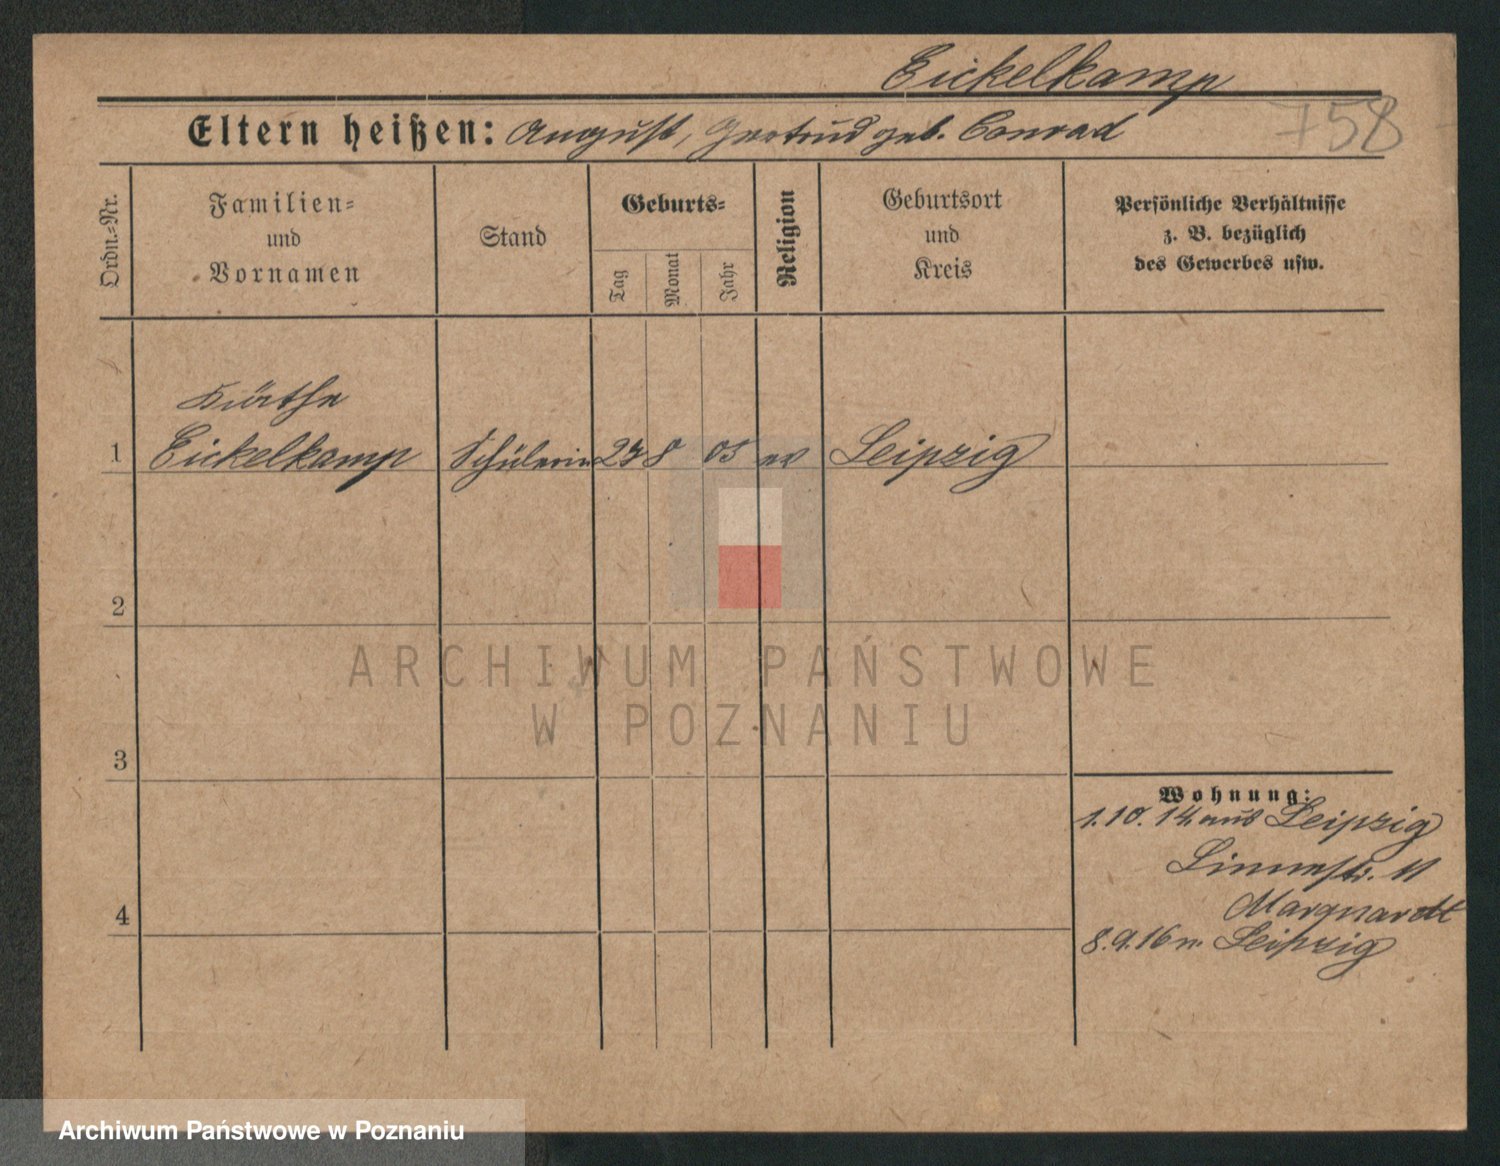 Eickelkamp
Eltern heißen: August, Gertrud geb. Conrad
758
Ordn.=Nr.
Familien=
und
Vornamen
Stand
Geburts=
Tag
Monat
Jahr
Religion
Geburtsort
und
Kreis
Persönliche Verhältnisse
z. B. bezüglich
des Gewerbes usw.
Käthe
1 Eickelkamp Schülerin 27 8 05 ev Leipzig
2
ARCHIWUM PAŃSTWOWE
W POZNANIU
3
Wohnung:
1.10.14. aus Leipzig
Linnestr. 11
Marquardt
4
8.9.16 n. Leipzig
Archiwum Państwowe w Poznaniu